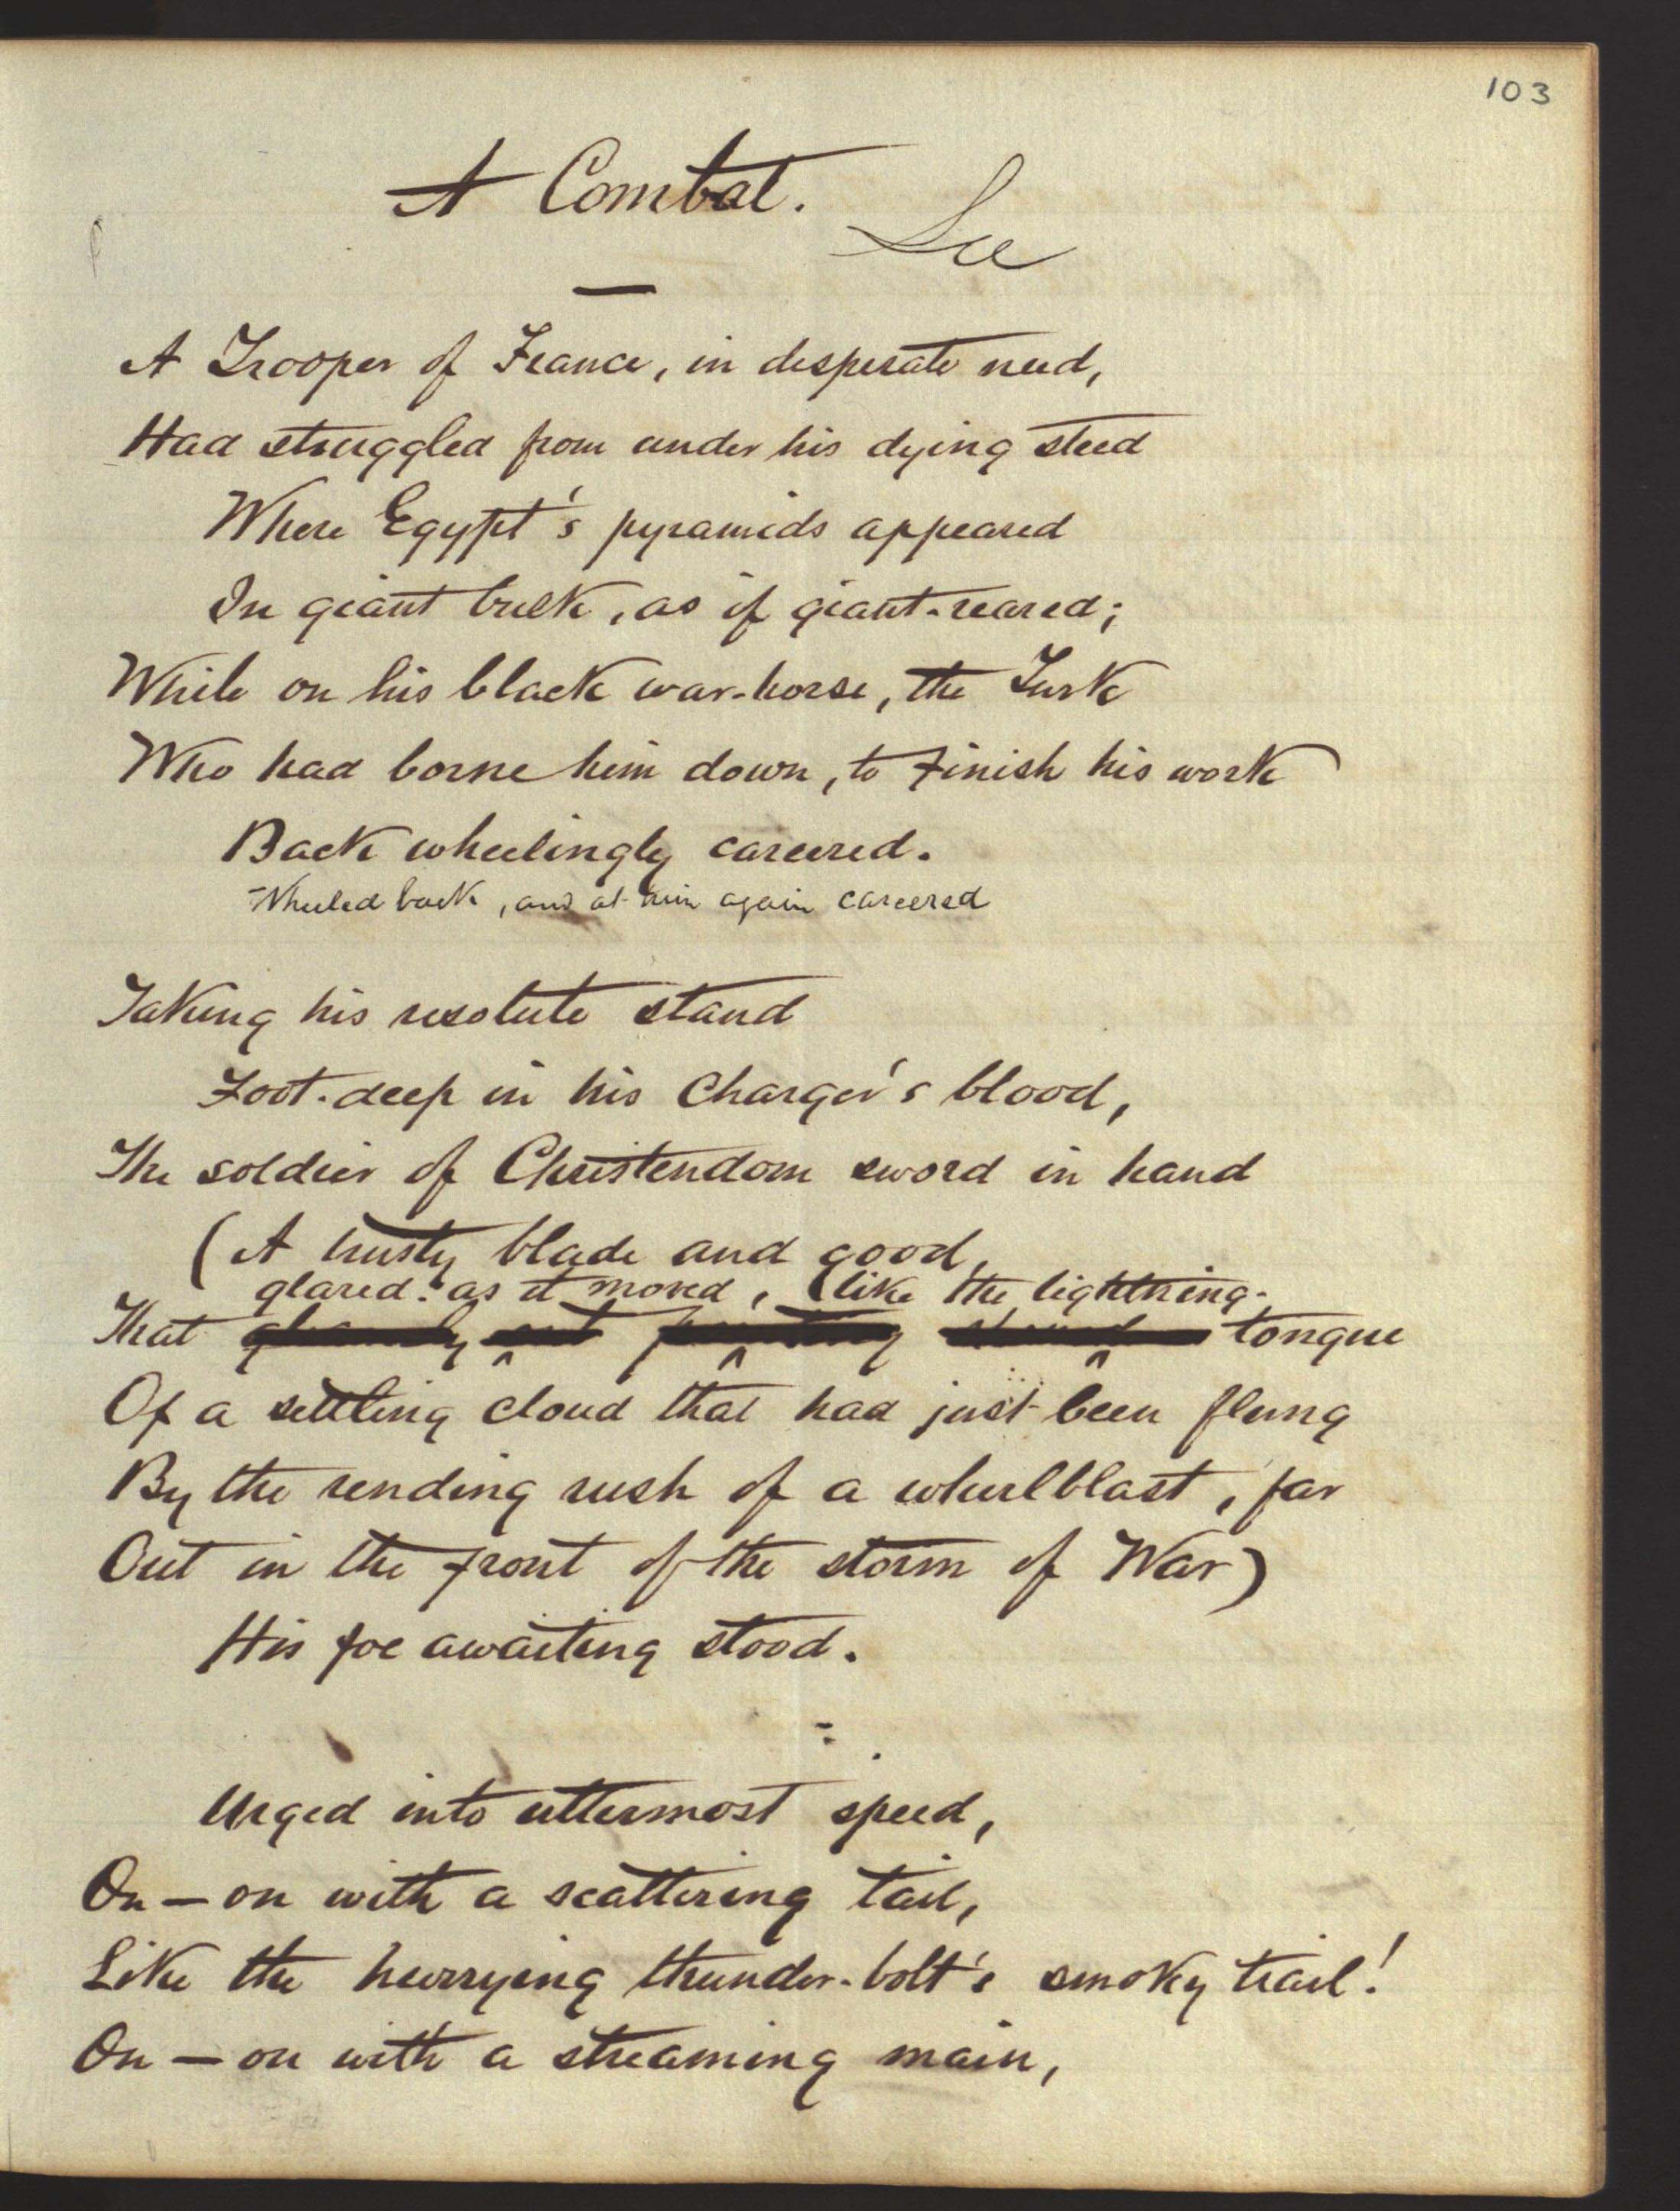 103
A Combat.
A Trooper of France, in desperate need,
Had struggled from under his dying steed
Where Egypt's pyramids appeared
In giant bulk, as if giant-reared;
While on his black war-horse, the Turk
Who had borne him down, to finish his work
Back wheelingly careered.
Wheeled back, and at him again careered
Taking his resolute stand
Foot-deep in his Charger's blood,
The soldier of Christendom sword in hand
(A trusty blade and good,
glared as it moved, like the lightning-
That tongue
Of a settling cloud that had just been flung
By the rending rush of a whirlblast, far
Out in the front of the storm of War)
His foe awaiting stood.
Urged into uttermost speed,
On — on with a scattering tail,
Like the hurrying thunder-bolt's smoky trail!
On — on with a streaming main,